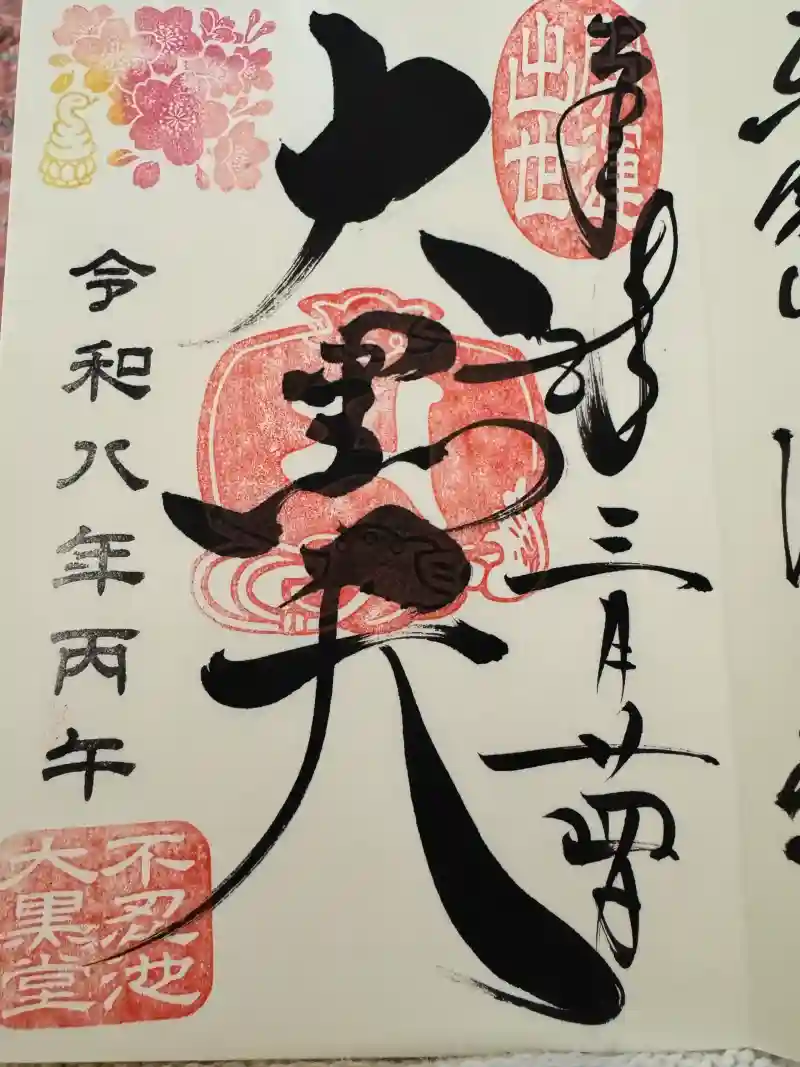 開運
出世
奉拝
三月廿四日
大黒天
令和八年丙午
不忍池
大黒堂